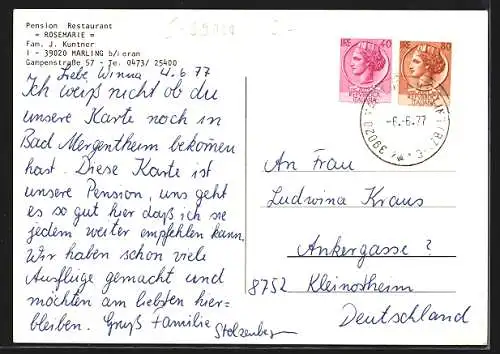 Pension Restaurant
= ROSEMARIE =
Fam. J. Kuntner
I - 39020 MARLING b/Meran
Gampenstraße 57 - Te. 0473/ 25400
Liebe Winna 4.6.77
Ich weiß nicht ob du
unsere Karte noch in
Bad Mergentheim bekommen
hast. Diese Karte ist
unsere Pension, uns geht
es so gut hier daß ich sie
jedem weiter empfehlen kann.
Wir haben schon viele
Ausflüge gemacht und
möchten am liebsten hier-
bleiben. Gruß Familie
Stolzenberger
LIRE 40
ITALIANA
LIRE 80
ITALIANA
-6.-6.77
39020
(BZ)
An Frau
Ludwina Kraus
Ankergasse ?
8752 Kleinostheim
Deutschland